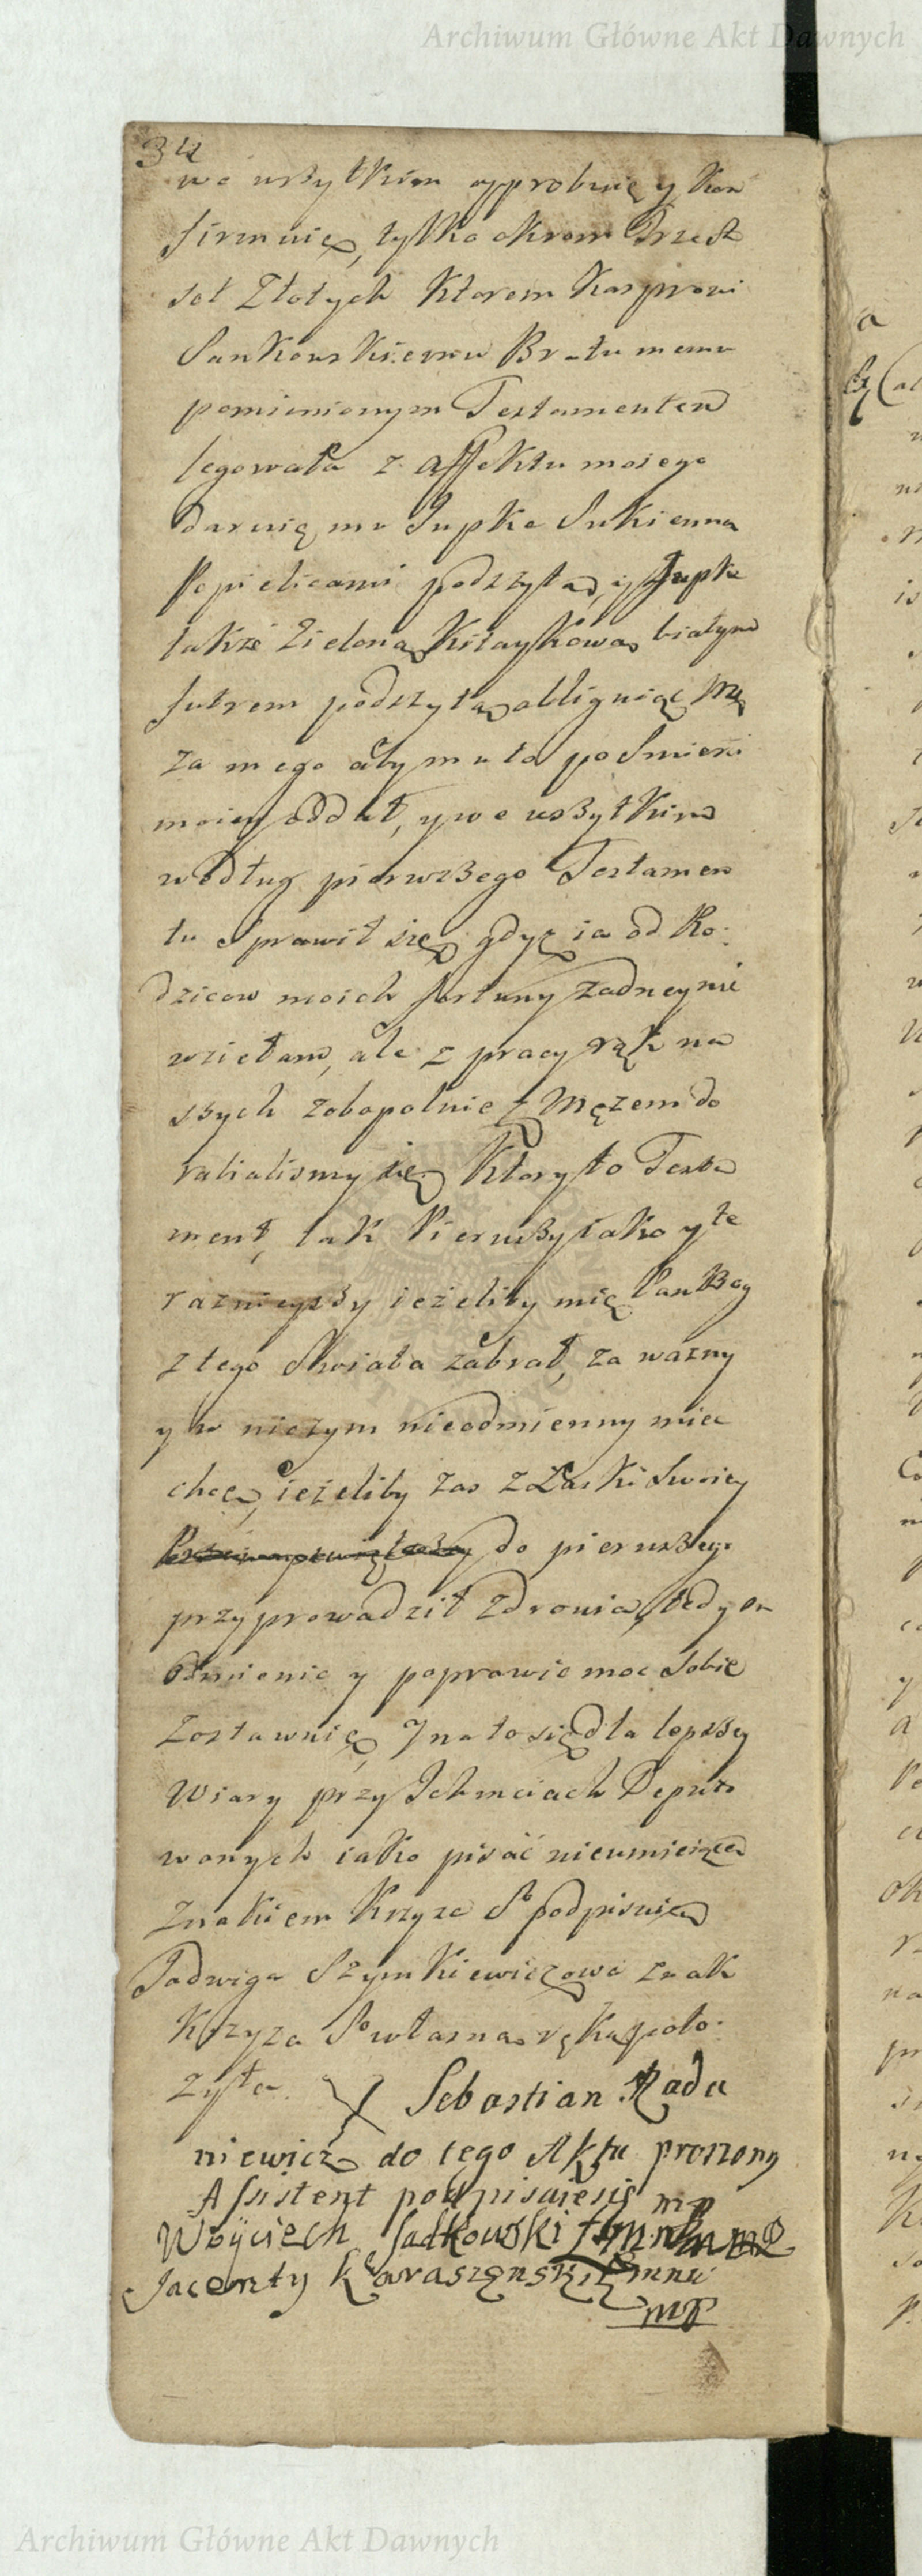 Archiwum Główne Akt Dawnych
34
we wszytkim approbuię y Kon
firmuię, tylko okrom Trzech
set Złotych Ktorem Kasprowi
Sankowskiemu Bratu memu
pomienionym Testamentem
legowała z affektu mojego
daruię mu Jupke Sukienną
Popielicami podszytą, y Jupkę
także Zieloną Kitaykową białym
futrem podszytą obliguiąc Mę
za mego aby mu to po Smierci
moiey oddał, y we wszytkim
według pierwszego Testamen
tu sprawił się, gdyż ia od Ro:
dzicow moich fortuny żadney nie
wziełam, ale z pracy rąk na
szych zobopolnie z Mężem do
rabialismy się Ktory to Testa
ment, tak Pierwszy iako y te
raznieyszy ieżeliby mię Pan Bog
z tego Swiata zabrał, za ważny
y w niczym nieodmienny mieć
chcę, ieżeliby zas z Łaski Swoiey
do pierwszego
przyprowadził Zdrowia, tedy
odmienic y poprawic moc Sobie
zostawuię, J na to się dla lepszey
Wiary przy Ichmciach Deputo
wanych iako pisać nieumieiąca
znakiem Krzyża So podpisuię
Jadwiga Szymkiewiczowa znak
Krzyża So własną ręką poło:
żyła X Sebastian Rada
niewicz do tego Aktu proszony
Assistent podpisuiesię mp
Woyciech Sadkowski mp
Jacenty Karaszenski
mp
Archiwum Główne Akt Dawnych